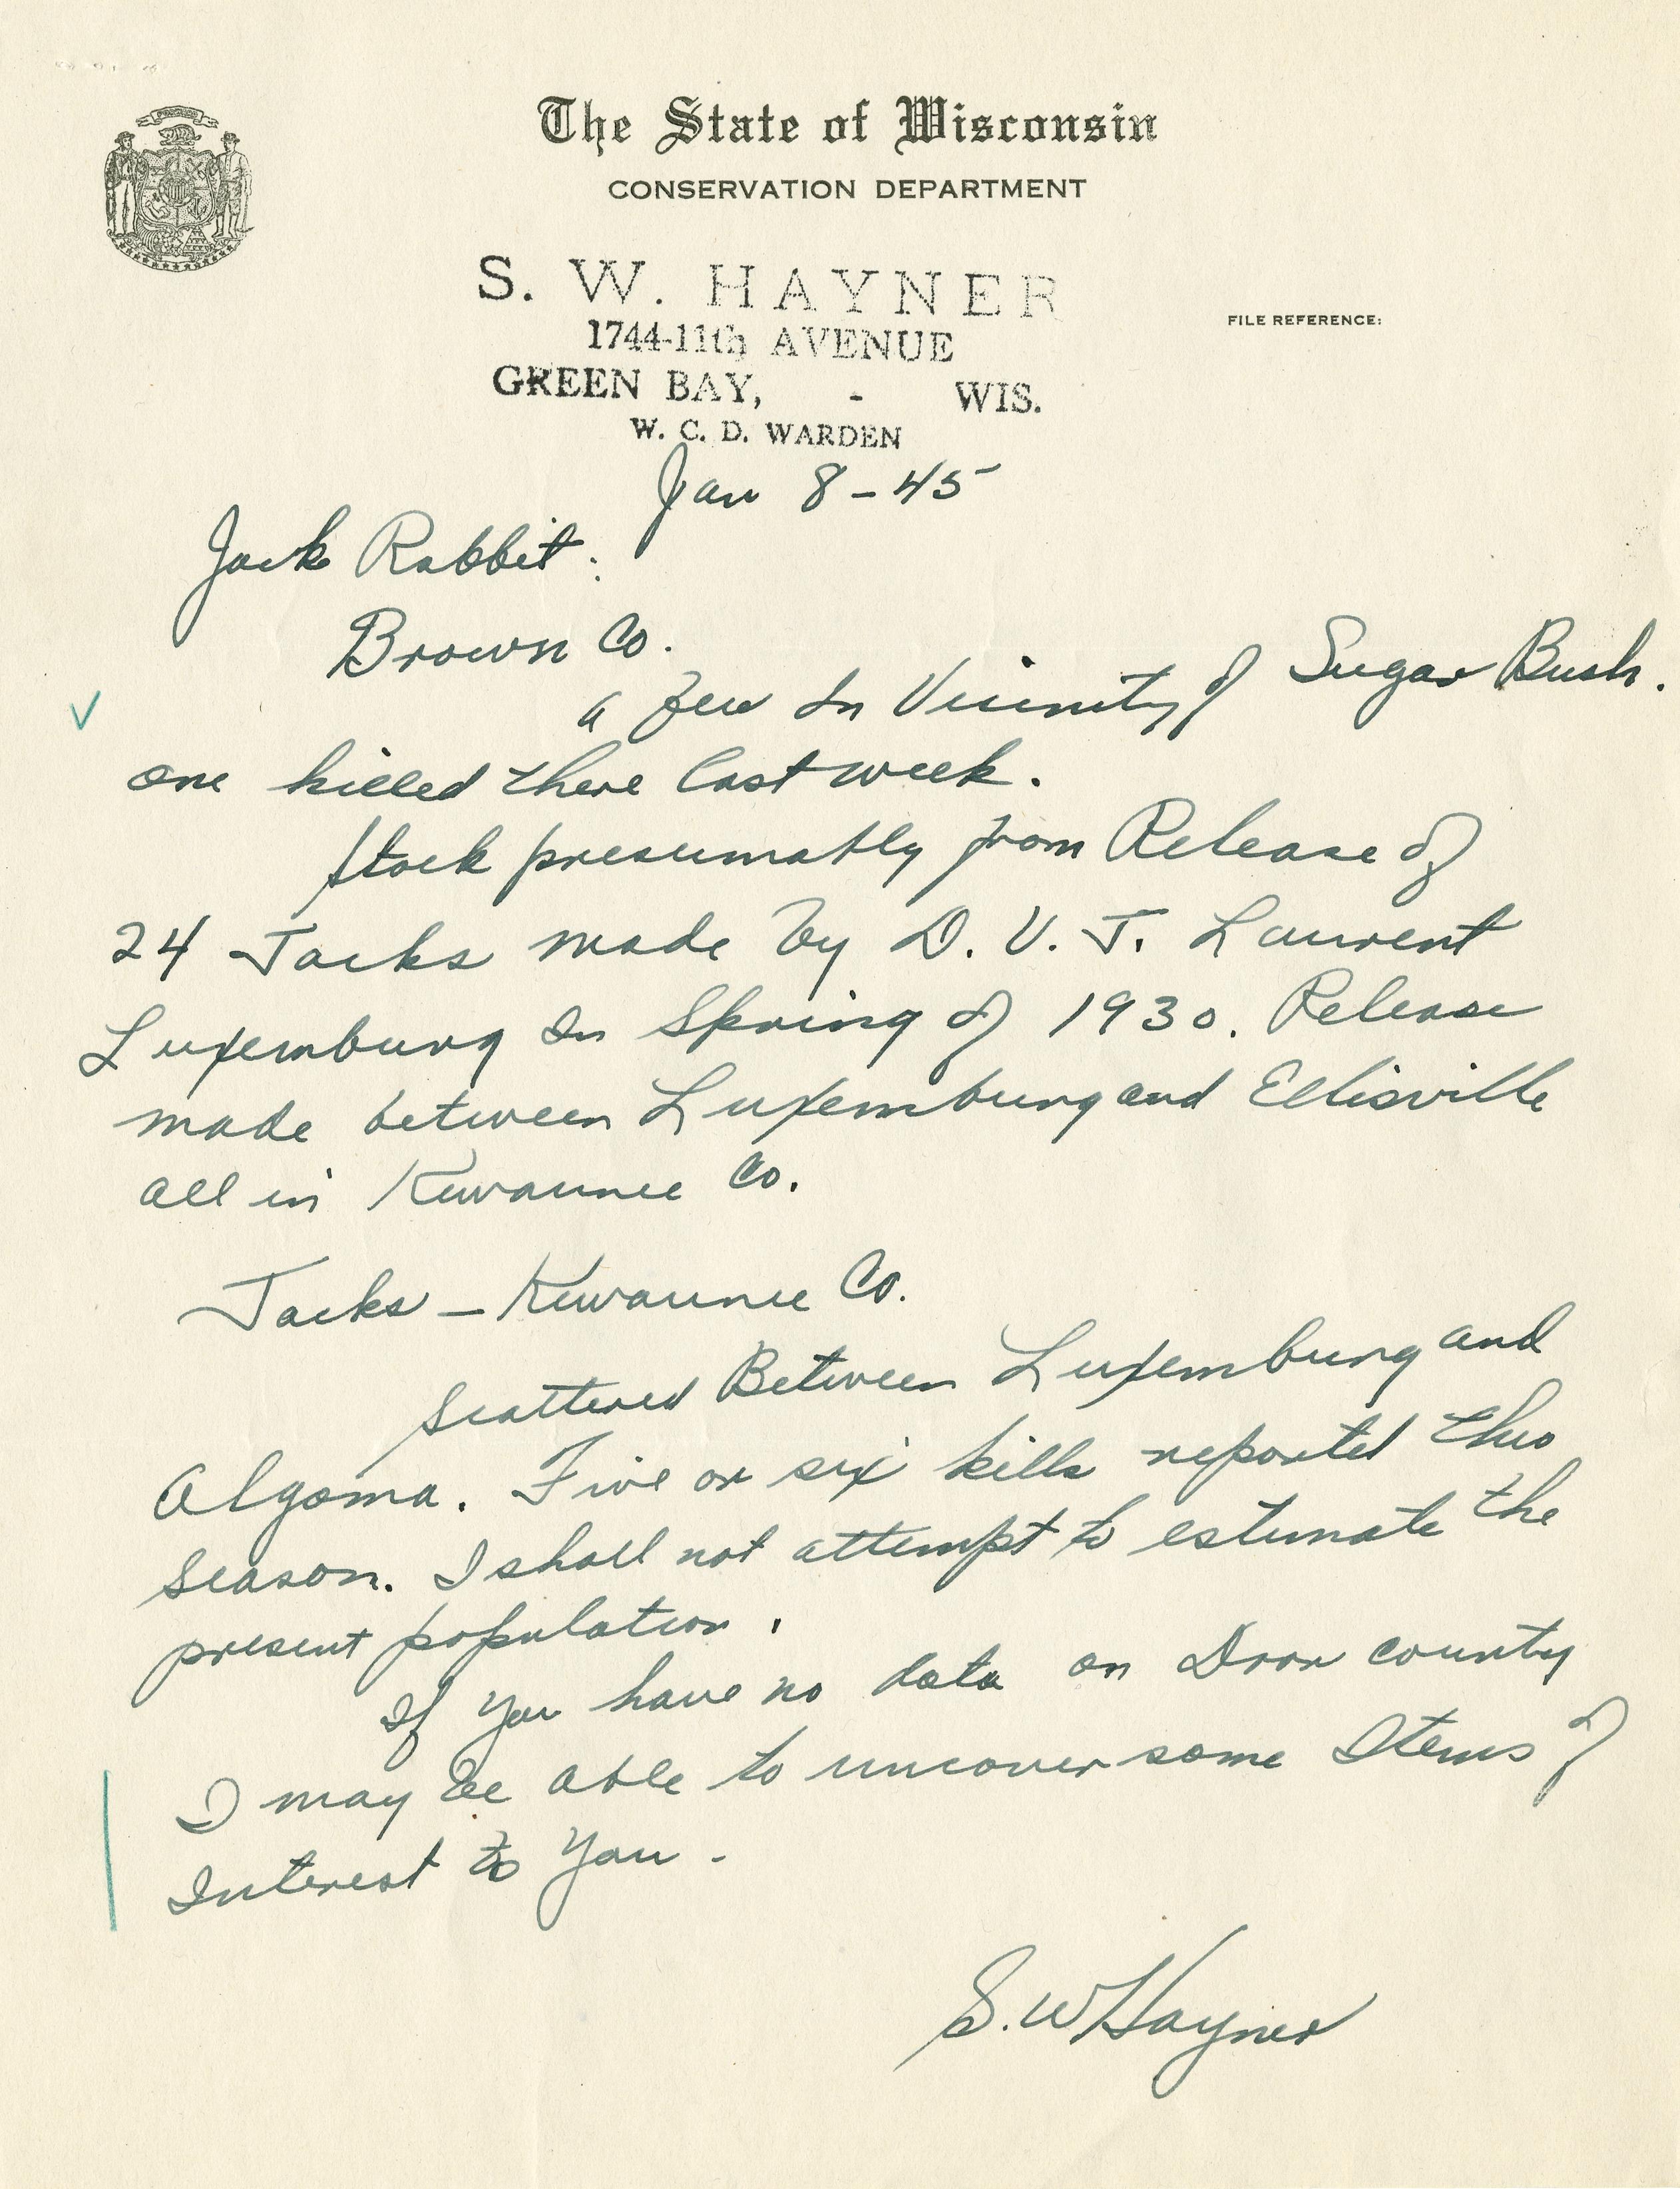 The State of Wisconsin
CONSERVATION DEPARTMENT
S. W. HAYNER
1744-11th AVENUE
FILE REFERENCE:
GREEN BAY, - WIS.
W. C. D. WARDEN
Jan 8-45
Jack Rabbit:
Brown Co.
a few In Vicinity of Sugar Bush.
one killed there last week.
Stock presumably from Release of
24 Jacks made by D. V. J. Laurent
Luxemburg In Spring of 1930. Release
made between Luxemburg and Ellisville
all in Kewaunee Co.
Jacks - Kewaunee Co.
Scattered Between Luxemburg and
Algoma. Five or six kills reported this
season. I shall not attempt to estimate the
present population.
If you have no data on Door county
I may be able to uncover some Items of
Interest to You -
S. W Hayner